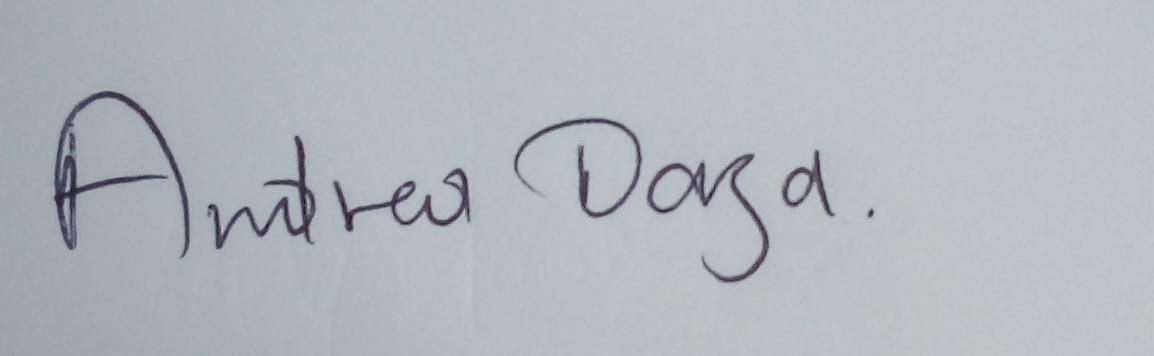 Andrea Daza.